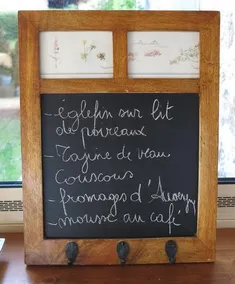 - églefin sur lit
de poireaux
- Tajine de veau
Couscous
- fromages d'Auvergn
- mousse au café